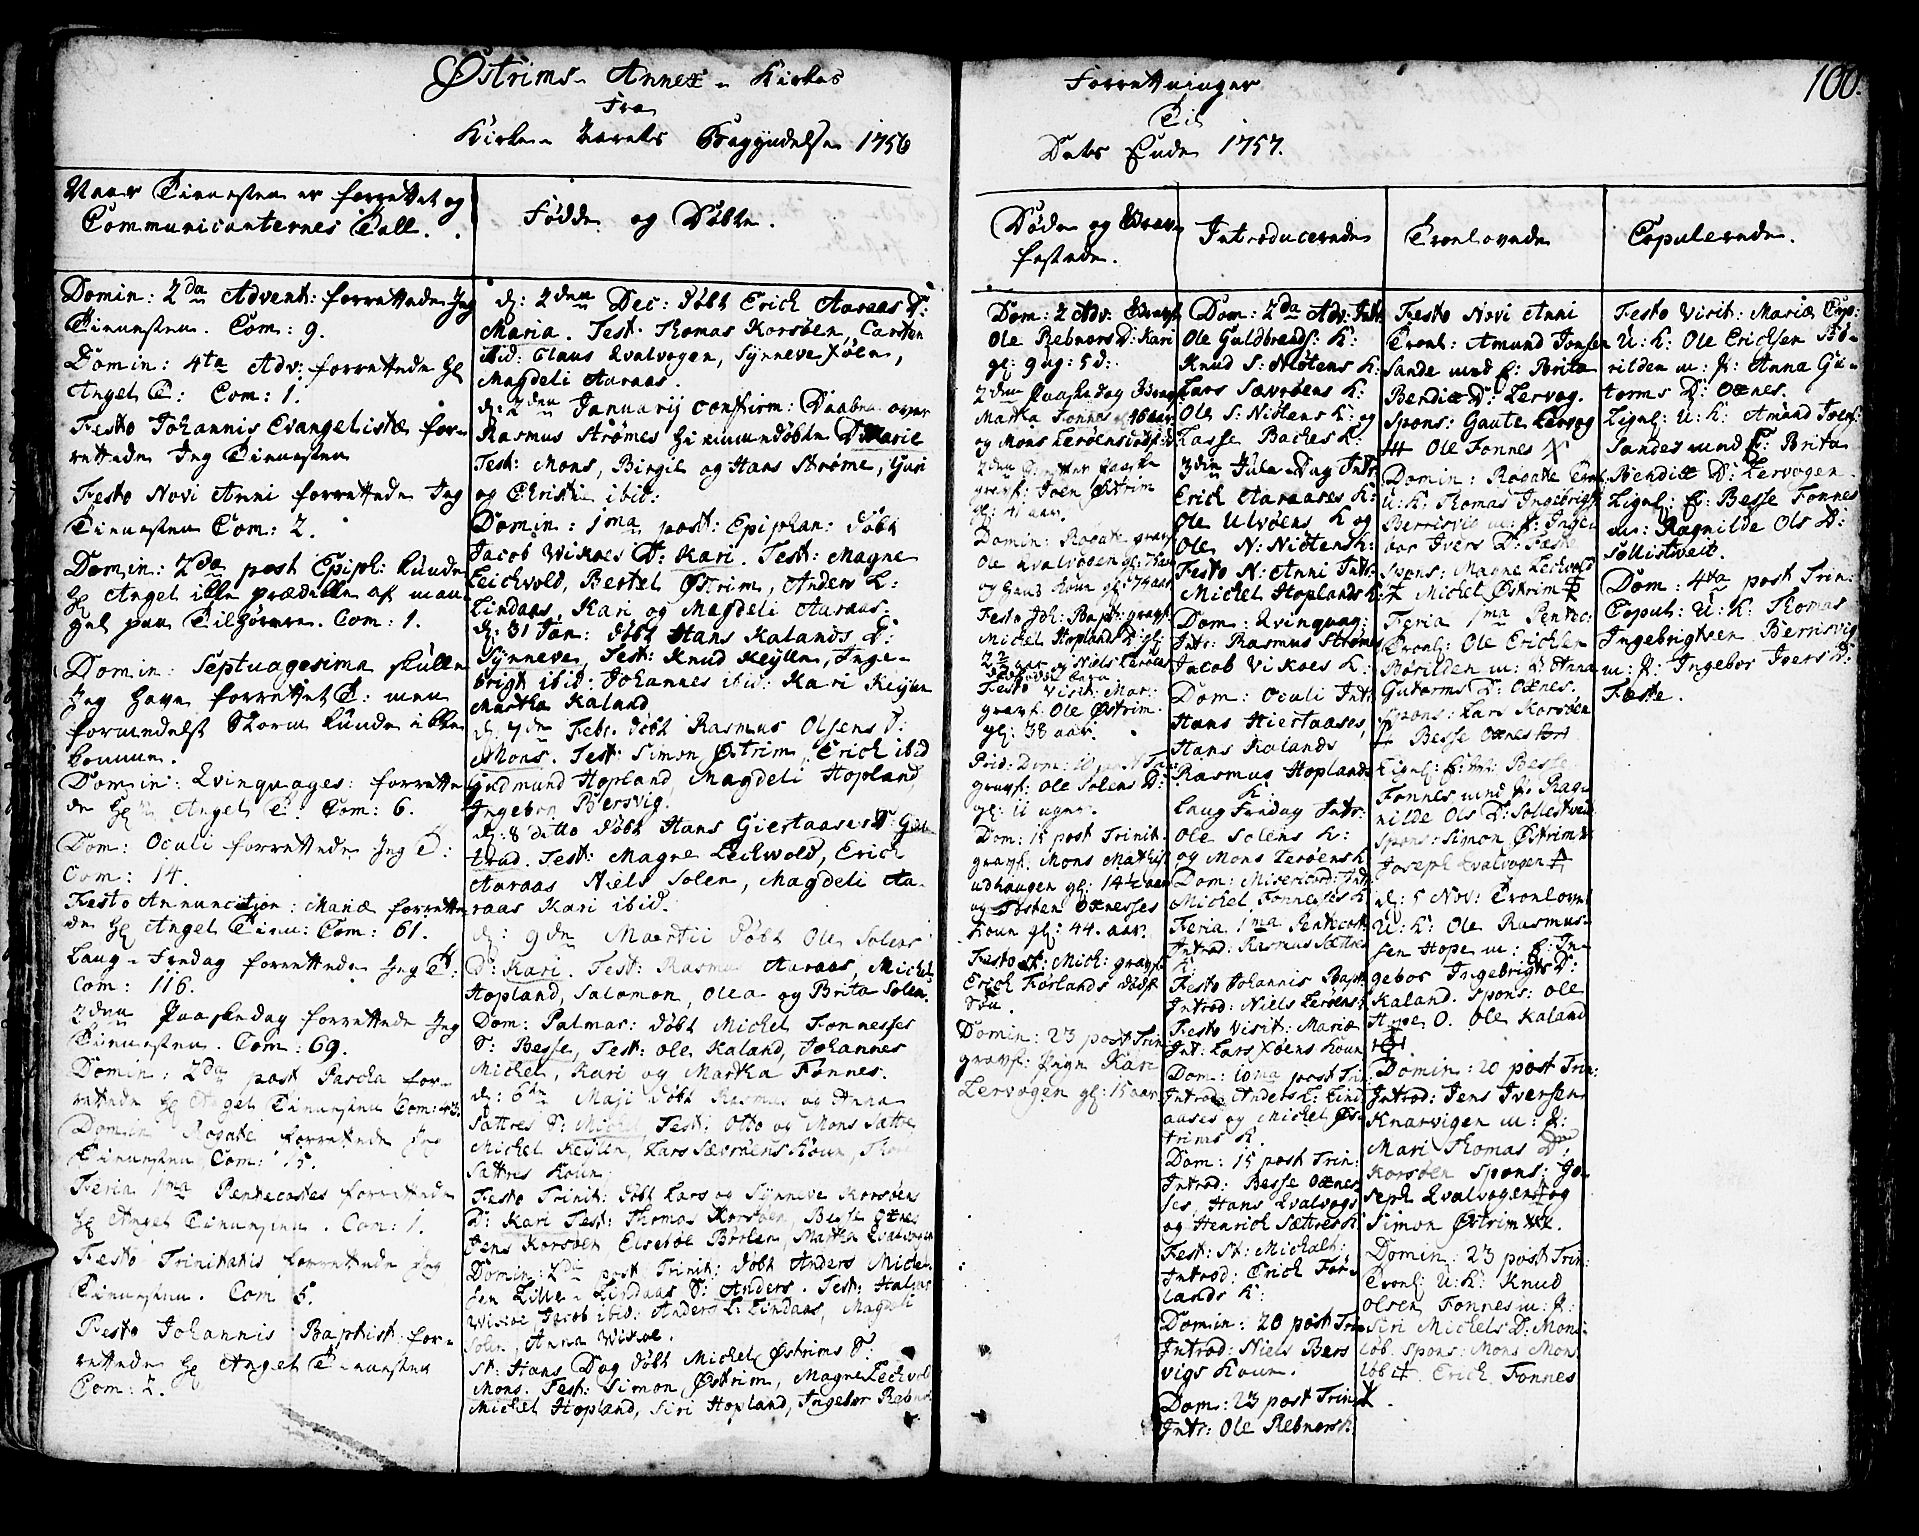 Østrims Annex Kirkes
Fra
Kirke Aarets Begyndelse 1756
Naar Tienesten er forrettet og
Communicanternes Tall.
Domin: 2da Advent: forrettede Jeg
Tienesten. Com: 9.
Domin: 4ta Adv: forrettede Hr
Angel T: Com: 1.
Festo Johannis Evangelistæ for-
rettede Jeg Tienesten
Festo Novi Anni forrettede Jeg
Tienesten Com: 2.
Domin: 2da post Epiph: kunde
Hr Angel ikke prædike af man
gel paa Tilhørere. Com: 1.
Domin: Septuagesima skulle
Jeg have forrettet T: men
formedelst Storm kunde ikke
komme.
Domin: Qvinquages: forrette
de Hr Angel T. Com: 6.
Dom: Oculi forrettede Jeg T:
Com: 14.
Festo Annunciation: Mariæ forrette
de Hr Angel Tiene: Com: 61.
Lang-Fredag forrettede Jeg T:
Com: 116.
2den Paaskedag forrettede Jeg
Tienesten. Com: 69.
Domin: 2da post Pascha for-
rettede Hr Angel Tienesten Com: 43.
Domin Rogate forrettede Jeg
Tienesten Com: 15.
Feria 1ma Pentecostes forrettede
Hr Angel Tienesten. Com: 1.
Festo Trinitatis forrettede Jeg
Tienesten. Com 5.
Festo Johannis Baptist: for-
rettede Hr Angel Tienesten
Com: 2.
Fødde og Døbte.
d: 2den Dec: døbt Erich Aaraas D:
Maria. Test: Thomas Korsøen, Carsten
ibid: Claus Qvalvogen, Synneve Xøen,
Magdeli Aaraas.
d: 2den Januarij confirm: Daaben over
Rasmus Strømes hiemmedøbte D: Marie
Test: Mons, Birgit og Hans Strøme, Guri
og Christi ibid:
Domin: 1ma post: Epiphan: døbt
Jacob Wikøes D: Kari. Test: Magne
Leichvold, Bertel Østrim, Anders L:
Lindaas, Kari og Magdeli Aaraas.
d: 31 Jan: døbt Hans Kalands D:
Synneve, Test: Knud Keylen, Inge-
brigt ibid: Johannes ibid: Kari Keylen
Martha Kaland
d: 7de Febr. døbt Rasmus Olsens S:
Mons. Test: Simon Østrim, Erich ibid
Gudmund Hopland, Magdeli Hopland,
Ingebor Bersvig.
d: 8 ditto døbt Hans Giertaases D: Giær
trud. Test: Magne Leichvold, Erich
Aaraas Niels Solen, Magdeli Aa-
raas Kari ibid.
d: 9de Martii døbt Ole Solens
D: Kari. Test: Rasmus Aaraas, Michel
Hopland, Salomon, Olea og Brita Solen.
Dom: Palmar: døbt Michel Fonneses
S: Besse, Test: Ole Kaland, Johannes
Michel, Kari og Martha Fonnes.
d: 6te Maji døbt Rasmus og Anna
Sættres S: Michel, Test: Otto og Mons Sættre
Michel Keylen, Lars Sævrøens Koun,
Sættres Koun
Festo Trinit: døbt Lars og Synneve Korsøens
D: Kari Test: Thomas Korsøen, Besse Oxnes
Jens Korsøen, Elsebøe Børlen, Martha Qvalvogen
Domin: 2da post Trinit: døbt Anders Michel
sen Lille-Lindaas S: Anders. Test: Halvor
Wikøe, Jacob ibid: Anders L: Lindaas, Magdeli
Solen, Anna Wikøe.
St: Hans Dag døbt Michel Østrims S:
Mons. Test: Simon Østrim, Magne Leichvold
Michel Hopland, Siri Hopland, Ingebor Rebnor
Forrettninger
Til
Dets Ende 1757.
100.
Døde og Grav-
festede.
Dom: 2 Adv: Gravf:
Ole Rebnors D: Kari
gl: 9 ug: 5 d:
2den Paaskedag
Martha Fonnes 46 aar
og Mons Lerøens
gravf: Joen Østrim
gl: 41 aar.
Domin: Rogate gravf:
Ole Qvalvogen
og Hans Koun gl: 74 aar
Festo Joh: Bapt: gravf:
Michel Hopland gl:
22 aar og Niels Lerøens
Festo Visit: Mar:
gravf: Ole Østrim.
gl: 38 aar.
Prid: Dom: 10 post Trin
gravf: Ole Solens D:
gl: 11 uger.
Dom: 15 post Trinit.
gravf: Mons Mathis
udhaugen gl: 14½ aar
og Tosten Oxneses
Koun gl: 44. aar.
Festo St: Mich: gravf:
Erich Førlands dødf:
Søn.
Domin: 23 post Trin
gravf: Pigen Kari
Lervogen gl: 15 aar
Introducerede
Dom: 2da Adv: Intr:
Ole Guldbrands: K:
Knud S: Nøtens K:
Lars Sævrøens K:
Ole S: Nøtens K: og
Lasse Baches K:
3die Jule-Dag Intr
Erich Aaraases K:
Ole Ulvøens K og
Ole N: Nøtens K:
Festo N: Anni Intr:
Michel Hoplands K:
Dom: Qvinquag:
Intr: Rasmus Strømes
Jacob Vikøes K:
Dom: Oculi Intr
Hans Hiertaases,
Hans Kalands
Rasmus Hoplands
K:
Lang Fredag Intr:
Ole Solens K:
og Mons Lerøens K
Dom: Misericord: Intr
Michel Fonneses K
Feria 1ma Pentecost
Introd: Rasmus Sættres
K:
Festo Johannis Bapt
Introd: Niels Lerøens
Festo Visit: Mariæ
Int: Lars Xøens Koun
Dom: 10ma post Trin
Introd: Anders L: Lind
aases og Michel Øs
trims K.
Dom: 15 post Trin:
Introd: Besse Oxnes
ses, Hans Qvalvogs
og Henrich Sættres K:
Fest: St: Michael:
Introd: Erich Før-
lands K:
Domin: 20 post Trin
Introd: Niels Bers
vigs Koun.
Dom: 23 post Trin
Intr: Ole Rebnors K.
Troelovede
Festo Novi Anni
Troel: Amund Jonsen
Sande med P: Brita
Berdiæ D: Lervog.
Spons: Gaute Lervog
Ole Fonnes
Domin: Rogate Troel
U: K: Thomas Ingebrigts
Berrisvig m: P: Inge
bor Ivers D: Feste
Spons: Magne Leichvold
Michel Østrim
Feria 1ma Pentec:
Troel: Ole Erichsen
Børilden m: P: Anna
Gutorms D: Oxnes.
Spons: Lars Korsøen
Besse Oxnes
Ligel: E: M: Besse
Fonnes med P: Rag-
nilde Ols D: Sollestveit
Spons: Simon Østrim
Joseph Qvalvogen
d: 5 Nov: Troelovet
U: K: Ole Rasmus-
sen Hope m: P: In-
gebor Ingebrigts D:
Kaland. Spons: Ole
Hope O. Ole Kaland
Domin: 20 post Trin:
Introd: Jens Iversen
Knarvigen m: P:
Mari Thomas D:
Korsøen Spons: Jo-
seph Qvalvogen og
Simon Østrim
Domin: 23 post Trin:
Troel: U: K: Knud
Olsen Fonnes m: P:
Siri Michels D: Mons
løb. Spons: Mons Mons
løb Erich Fonnes
Copulerede.
Festo Visit: Mariæ Cop:
U: K: Ole Erichsen Bø-
rilden m: P: Anna Gu-
torms D: Oxnes.
Ligel: U: K: Amund Joens:
Sandes med P: Brita
Bendiæ D: Lervogen
Ligel: E: Besse Fonnes
m: Ragnilde Ols D:
Sollistveit.
Dom: 4ta post Trin:
Copul: U: K: Thomas
Ingebrigtsen Berrisvig
m: P: Ingebor Ivers D:
Feste.